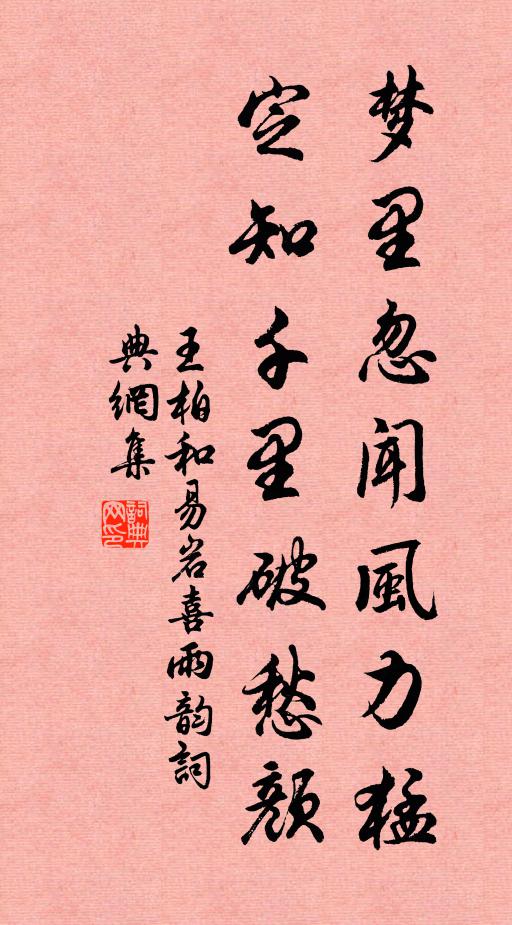 梦里忽闻風力猛
定知千里破愁顔
王柏和易岩喜雨韵詞
典網集
詞典网印